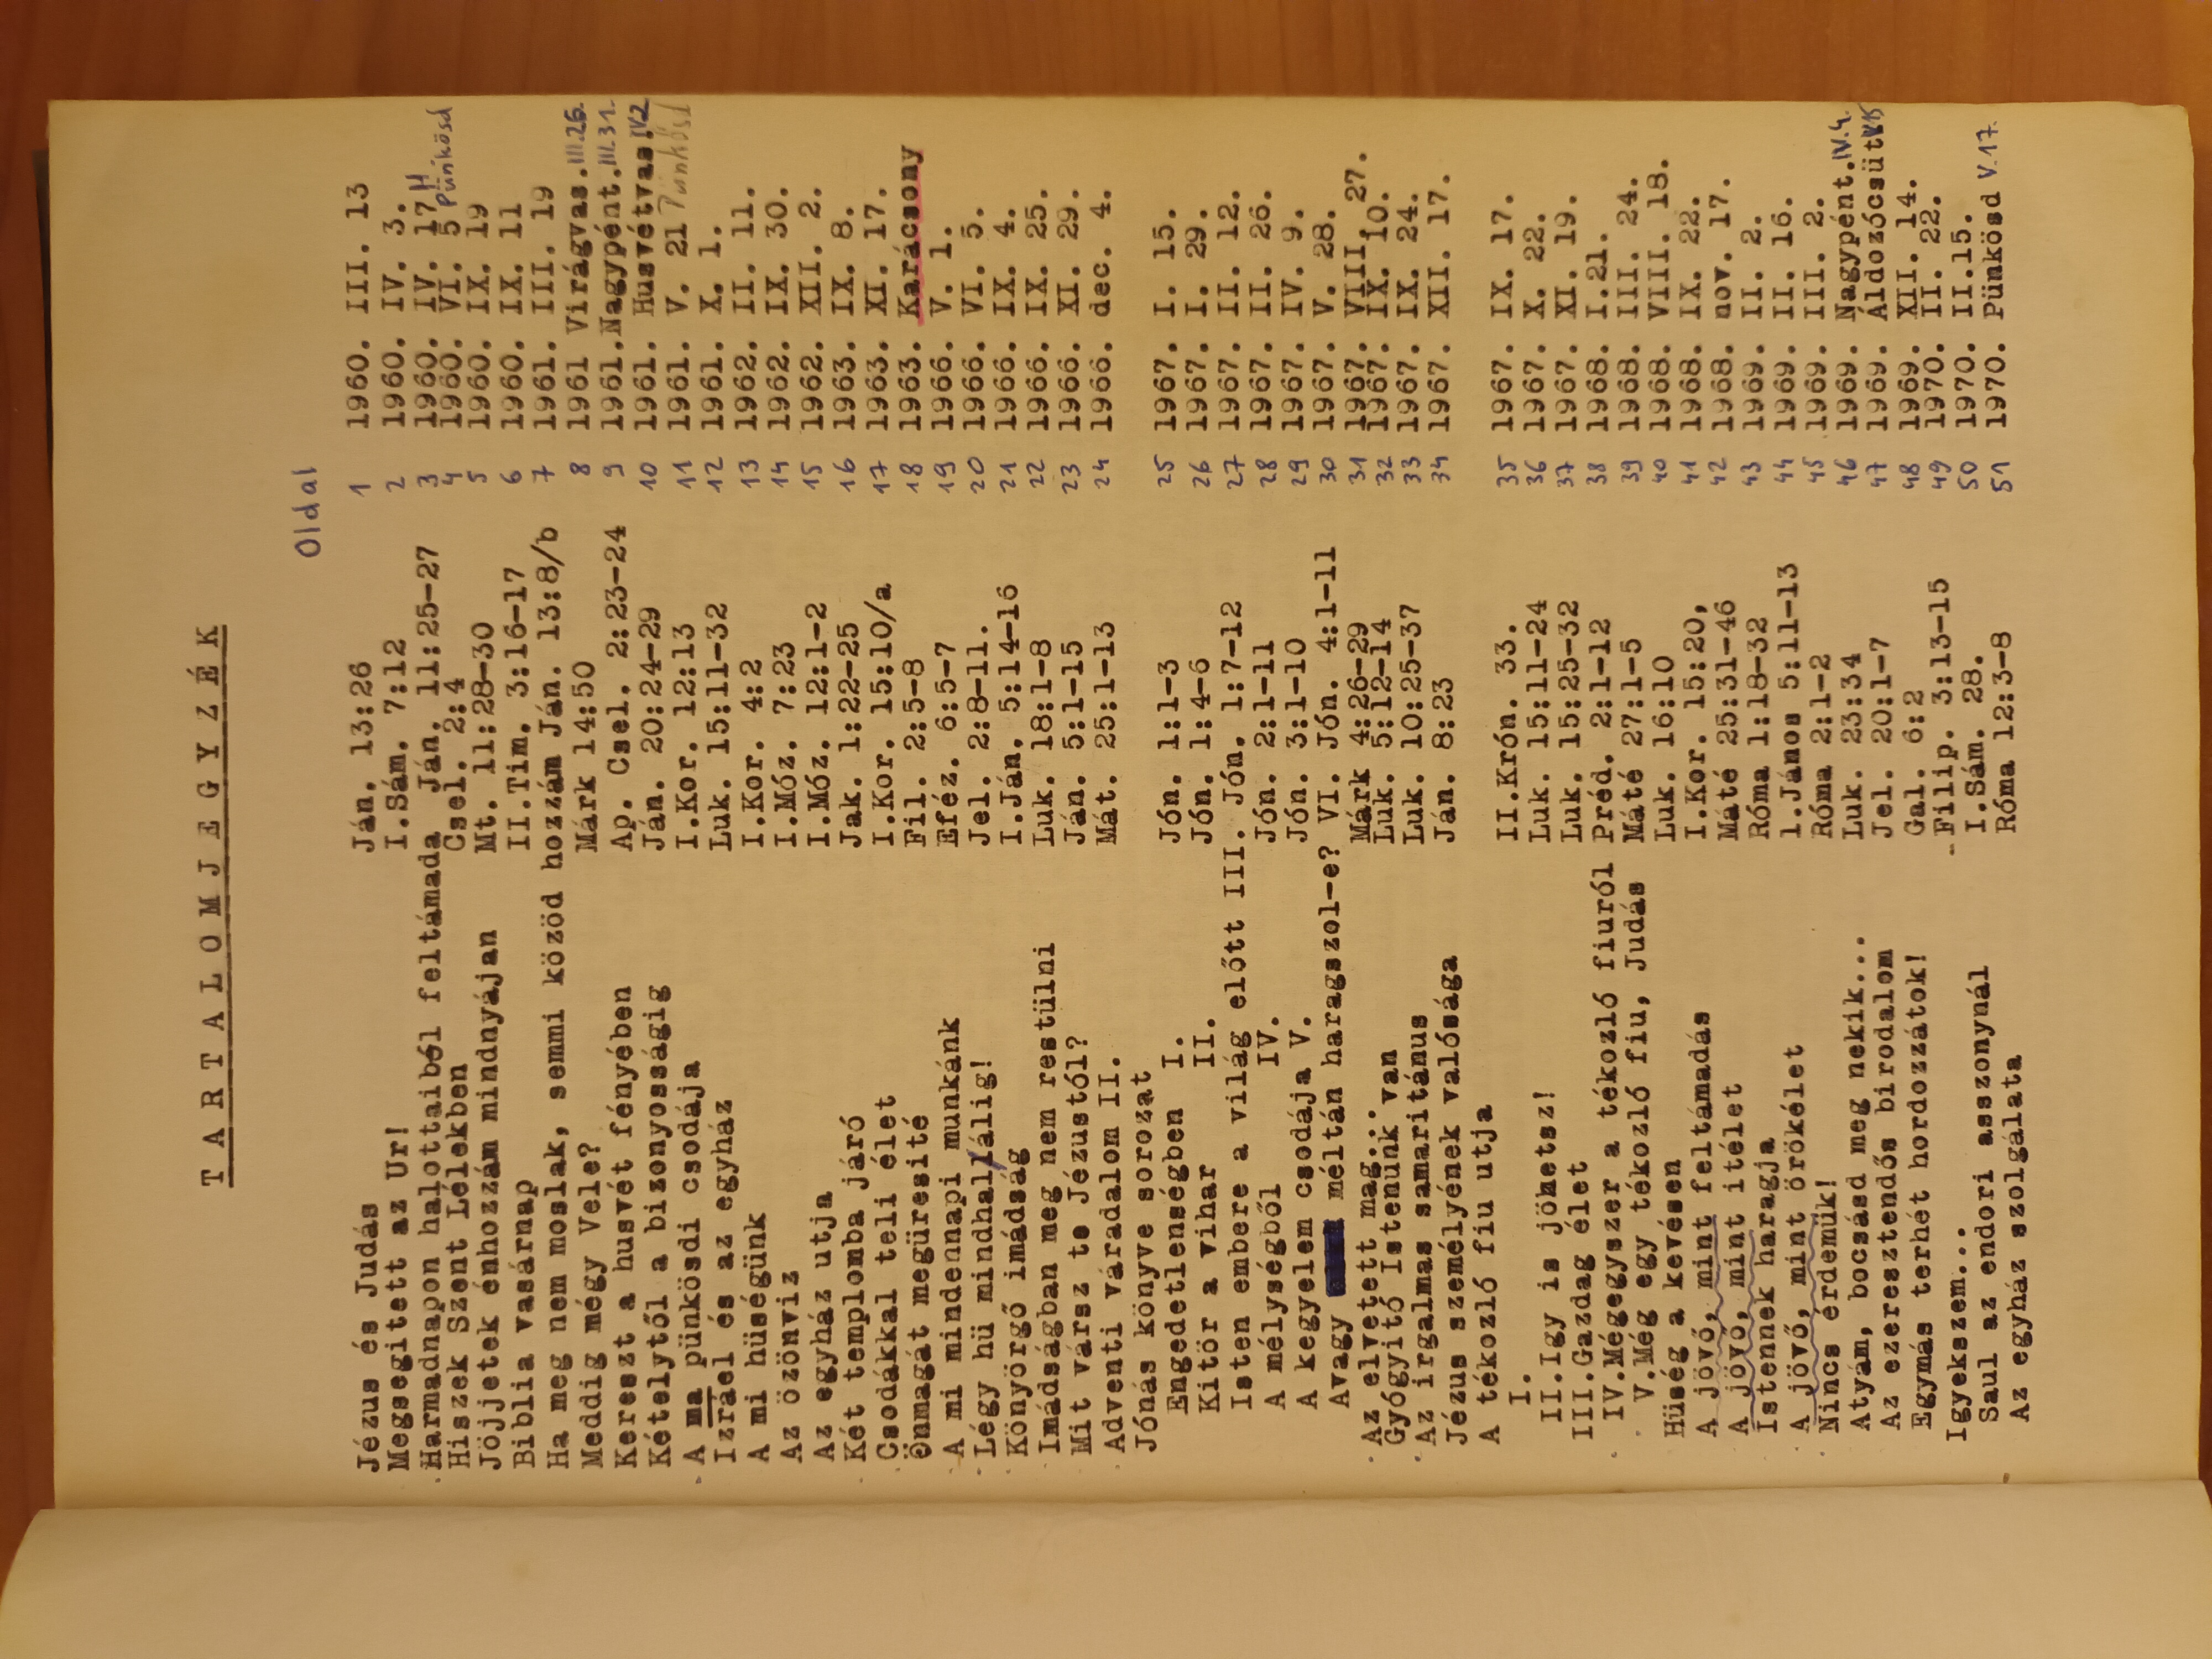 TARTALOMJEGYZÉK
Oldal
Jézus és Judás Ján. 13:26 1 1960. III. 13
Megsegitett az Ur! I.Sám. 7:12 2 1960. IV. 3.
Harmadnapon halottaiból feltámada Ján. 11:25-27 3 1960. IV. 17 H
Hiszek Szent Lélekben Csel. 2:4 4 1960. VI. 5 Pünkösd
Jöjjetek énhozzám mindnyájan Mt. 11:28-30 5 1960. IX. 19
Biblia vasárnap II.Tim. 3:16-17 6 1960. IX. 11
Ha meg nem moslak, semmi közöd hozzám Ján. 13:8/b 7 1961. III. 19
Meddig mégy Vele? Márk 14:50 8 1961 Virágvas. III.26.
Kereszt a husvét fényében Ap. Csel. 2:23-24 9 1961. Nagypént. III.31.
Kételytől a bizonyosságig Ján. 20:24-29 10 1961. Husvétvas. IV.2
A ma pünkösdi csodája I.Kor. 12:13 11 1961. V. 21 Pünkösd
Izráel és az egyház Luk. 15:11-32 12 1961. X. 1.
A mi hüségünk I.Kor. 4:2 13 1962. II. 11.
Az özönviz I.Móz. 7:23 14 1962. IX. 30.
Az egyház utja I.Móz. 12:1-2 15 1962. XII. 2.
Két templomba járó Jak. 1:22-25 16 1963. IX. 8.
Csodákkal teli élet I.Kor. 15:10/a 17 1963. XI. 17.
Önmagát megüresité Fil. 2:5-8 18 1963. Karácsony
A mi mindennapi munkánk Eféz. 6:5-7 19 1966. V. 1.
Légy hü mindhalálig! Jel. 2:8-11. 20 1966. VI. 5.
Könyörgő imádság I.Ján. 5:14-16 21 1966. IX. 4.
Imádságban meg nem restülni Luk. 18:1-8 22 1966. IX. 25.
Mit vársz te Jézustól? Ján. 5:1-15 23 1966. XI. 29.
Adventi váradalom II. Mát. 25:1-13 24 1966. dec. 4.
Jónás könyve sorozat
Engedetlenségben I. Jón. 1:1-3 25 1967. I. 15.
Kitör a vihar II. Jón. 1:4-6 26 1967. I. 29.
Isten embere a világ előtt III. Jón. 1:7-12 27 1967. II. 12.
A mélységből IV. Jón. 2:1-11 28 1967. II. 26.
A kegyelem csodája V. Jón. 3:1-10 29 1967. IV. 9.
Avagy méltán haragszol-e? VI. Jón. 4:1-11 30 1967. V. 28.
Az elvetett mag... Márk 4:26-29 31 1967. VIII. 27.
Gyógyitó Istenünk van Luk. 5:12-14 32 1967. IX. 10.
Az irgalmas samaritánus Luk. 10:25-37 33 1967. IX. 24.
Jézus személyének valósága Ján. 8:23 34 1967. XII. 17.
A tékozló fiu utja
I. II.Krón. 33. 35 1967. IX. 17.
II.Igy is jöhetsz! Luk. 15:11-24 36 1967. X. 22.
III.Gazdag élet Luk. 15:25-32 37 1967. XI. 19.
IV.Mégegyszer a tékozló fiuról Préd. 2:1-12 38 1968. I.21.
V.Még egy tékozló fiu, Judás Máté 27:1-5 39 1968. III. 24.
Hüség a kevésen Luk. 16:10 40 1968. VIII. 18.
A jövő, mint feltámadás I.Kor. 15:20, 41 1968. IX. 22.
A jövő, mint itélet Máté 25:31-46 42 1968. nov. 17.
Istennek haragja Róma 1:18-32 43 1969. II. 2.
A jövő, mint örökélet 1.János 5:11-13 44 1969. II. 16.
Nincs érdemük! Róma 2:1-2 45 1969. III. 2.
Atyám, bocsásd meg nekik... Luk. 23:34 46 1969. Nagypént. IV.4.
Az ezeresztendős birodalom Jel. 20:1-7 47 1969. Áldozócsüt
Egymás terhét hordozzátok! Gal. 6:2 48 1969. XII. 14.
Igyekszem... Filip. 3:13-15 49 1970. II. 22.
Saul az endori asszonynál I.Sám. 28. 50 1970. II.15.
Az egyház szolgálata Róma 12:3-8 51 1970. Pünkösd V.17.